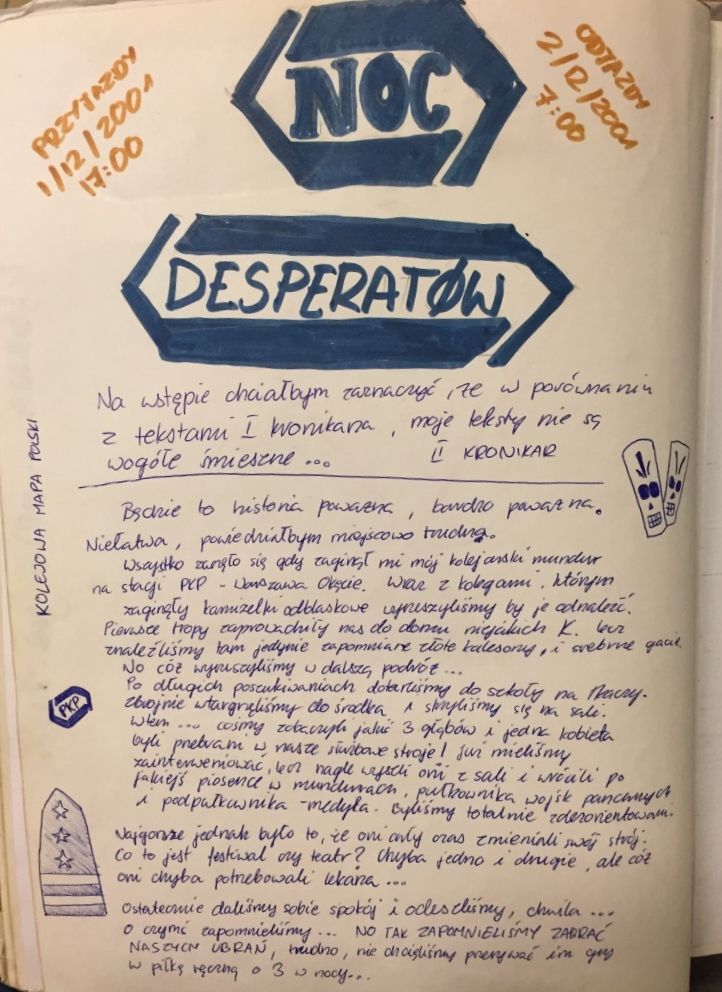 PRZYJAZDY
1/12/2001
17:00
NOC
ODJAZDY
2/12/2001
7:00
DESPERATØW
Na wstępie chciałbym zaznaczyć, że w porównaniu
z tekstami I kronikarza, moje teksty nie są
wogóle śmieszne...
II KRONIKARZ
KOLEJOWA MAPA POLSKI
Będzie to historia poważna, bardzo poważna.
Niełatwa, powiedziałbym miejscowo trudna.
Wszystko zaczęło się gdy zaginął mi mój kolejarski mundur
na stacji PKP - Warszawa Okęcie. Wraz z kolegami, którym
zaginęły kamizelki odblaskowe wyruszyliśmy by je odnaleźć.
Pierwsze tropy zaprowadziły nas do domu niejakich K. lecz
znaleźliśmy tam jedynie zapomniane złote kalesony, i srebrne gacie.
No cóż wyruszyliśmy w dalszą podróż...
Po długich poszukiwaniach dotarliśmy do szkoły na Tkaczy.
Zbrojnie wtargnęliśmy do środka i skryliśmy się na sali.
Wtem... cośmy zobaczyli jakiś 3 głąbów i jedna kobieta
byli przebrani w nasze służbowe stroje! Już mieliśmy
zainterweniować, lecz nagle wyszli oni z sali i wrócili po
jakiejś piosence w mundurach, pułkownika wojsk pancernych
i podpułkownika - medyka. Byliśmy totalnie zdezorientowani.
PKP
Najgorsze jednak było to, że oni cały czas zmieniali swój strój.
Co to jest festiwal czy teatr? Chyba jedno i drugie, ale cóż
oni chyba potrzebowali lekarza...
Ostatecznie daliśmy sobie spokój i odeszliśmy, chwila...
o czymś zapomnieliśmy... NO TAK ZAPOMNIELIŚMY ZABRAĆ
NASZYCH UBRAŃ, trudno, nie chcieliśmy przerywać im gry
w piłkę ręczną o 3 w nocy...